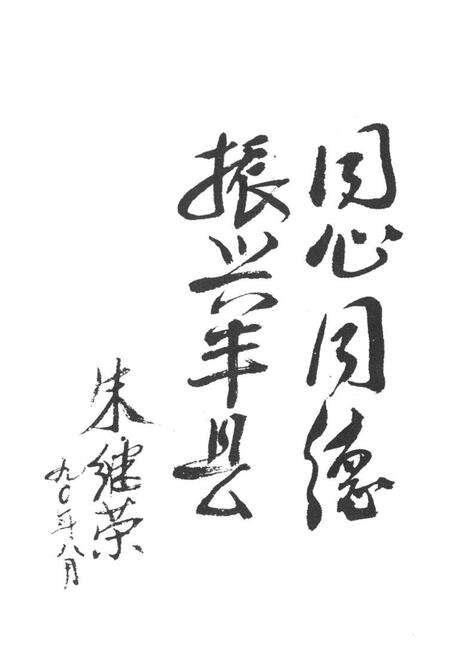 同心同德
振兴丰县
朱继荣
九〇年八月